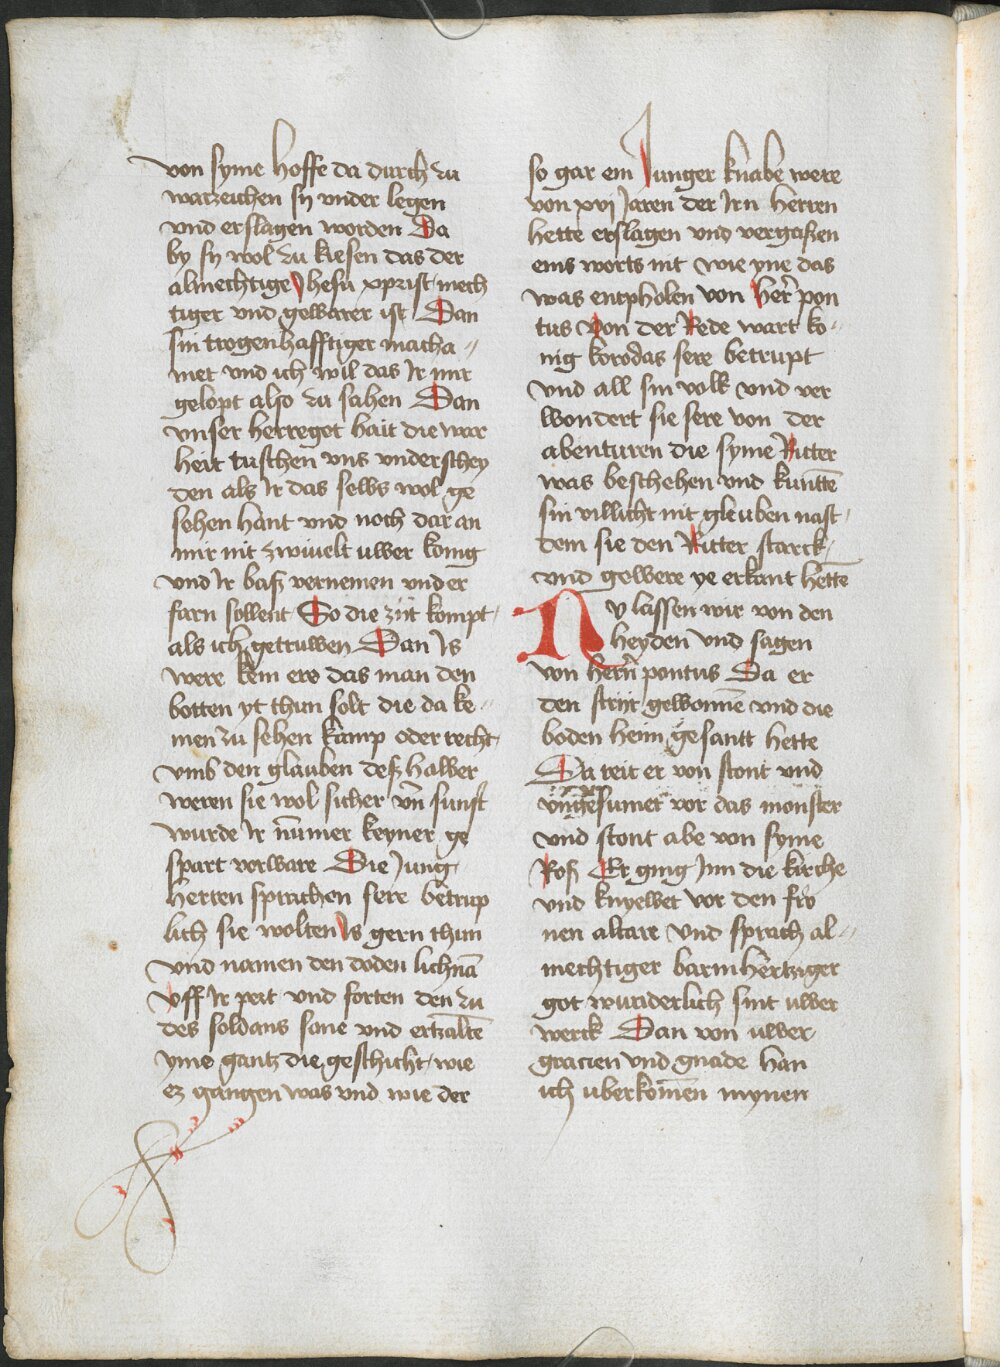 von syme hoffe da durch zu
warzeichen sij vnder legen
vnd erslagen worden Da
by sij wol zu kiesen das der
almechtige Jhesu xprist mech
tiger vnd gewarer ist Dan
sin trogenhafftiger macha-
met vnd ich wil das Ir mir
gelopt also zu sahen Dan
vnser herreget hait die war
heit tuschen vns vnderschey
den als Ir das selbs wol ge
sehen hant vnd noch dar an
mir nit zwiuelt vwer konig
vnd Ir bass vernemen vnd er
farn sollent So die zijt kompt
als ich getruwen Dan Is
were kein ere das man den
botten yt thun solt die da ke-
men zu sehen kamp oder recht
vmb den glauben dess halber
weren sie wol sicher vn̄ sunst
wurde Ir nūmer keyner ge
spart vorware Die Jung
herren sprachen sere betrup
lich sie wolten Is gern thun
vnd namen den doden lichnā
vff Ir pert vnd forten den zu
des soldans sone vnd ertzaltē
yme gantz die geschicht wie
ez gangen was vnd wie der
so gar ein Junger knabe were
von xvj Jaren der Irn herren
hette erslagen vnd vergassen
eins worts nit wie yne das
was entpholen von her pon
tus Von der Rede wart ko-
nig korodas sere betrupt
vnd all sin volk vnd ver
wondert sie sere von der
abenturen die syme Ritter
was beschehen vnd kuntē
sin villicht nit gleuben nast
dem sie den Ritter starck
vnd gewere ye erkant hettē
Nv lassen wir von den
heyden vnd sagen
von hern̄ pontus Da er
den strijt gewonnē vnd die
boden heim gesantt hette
Da reit er von stont vnd
vngesumet vor das monster
vnd stont abe von syme
Ross Er ging Inn die kirche
vnd knyewet vor den fro
nen altare vnd sprach al-
mechtiger barmhertziger
got wunderlich sint vwer
werck Dan von vwer
gracien vnd gnade han
ich uberkomēn mynen